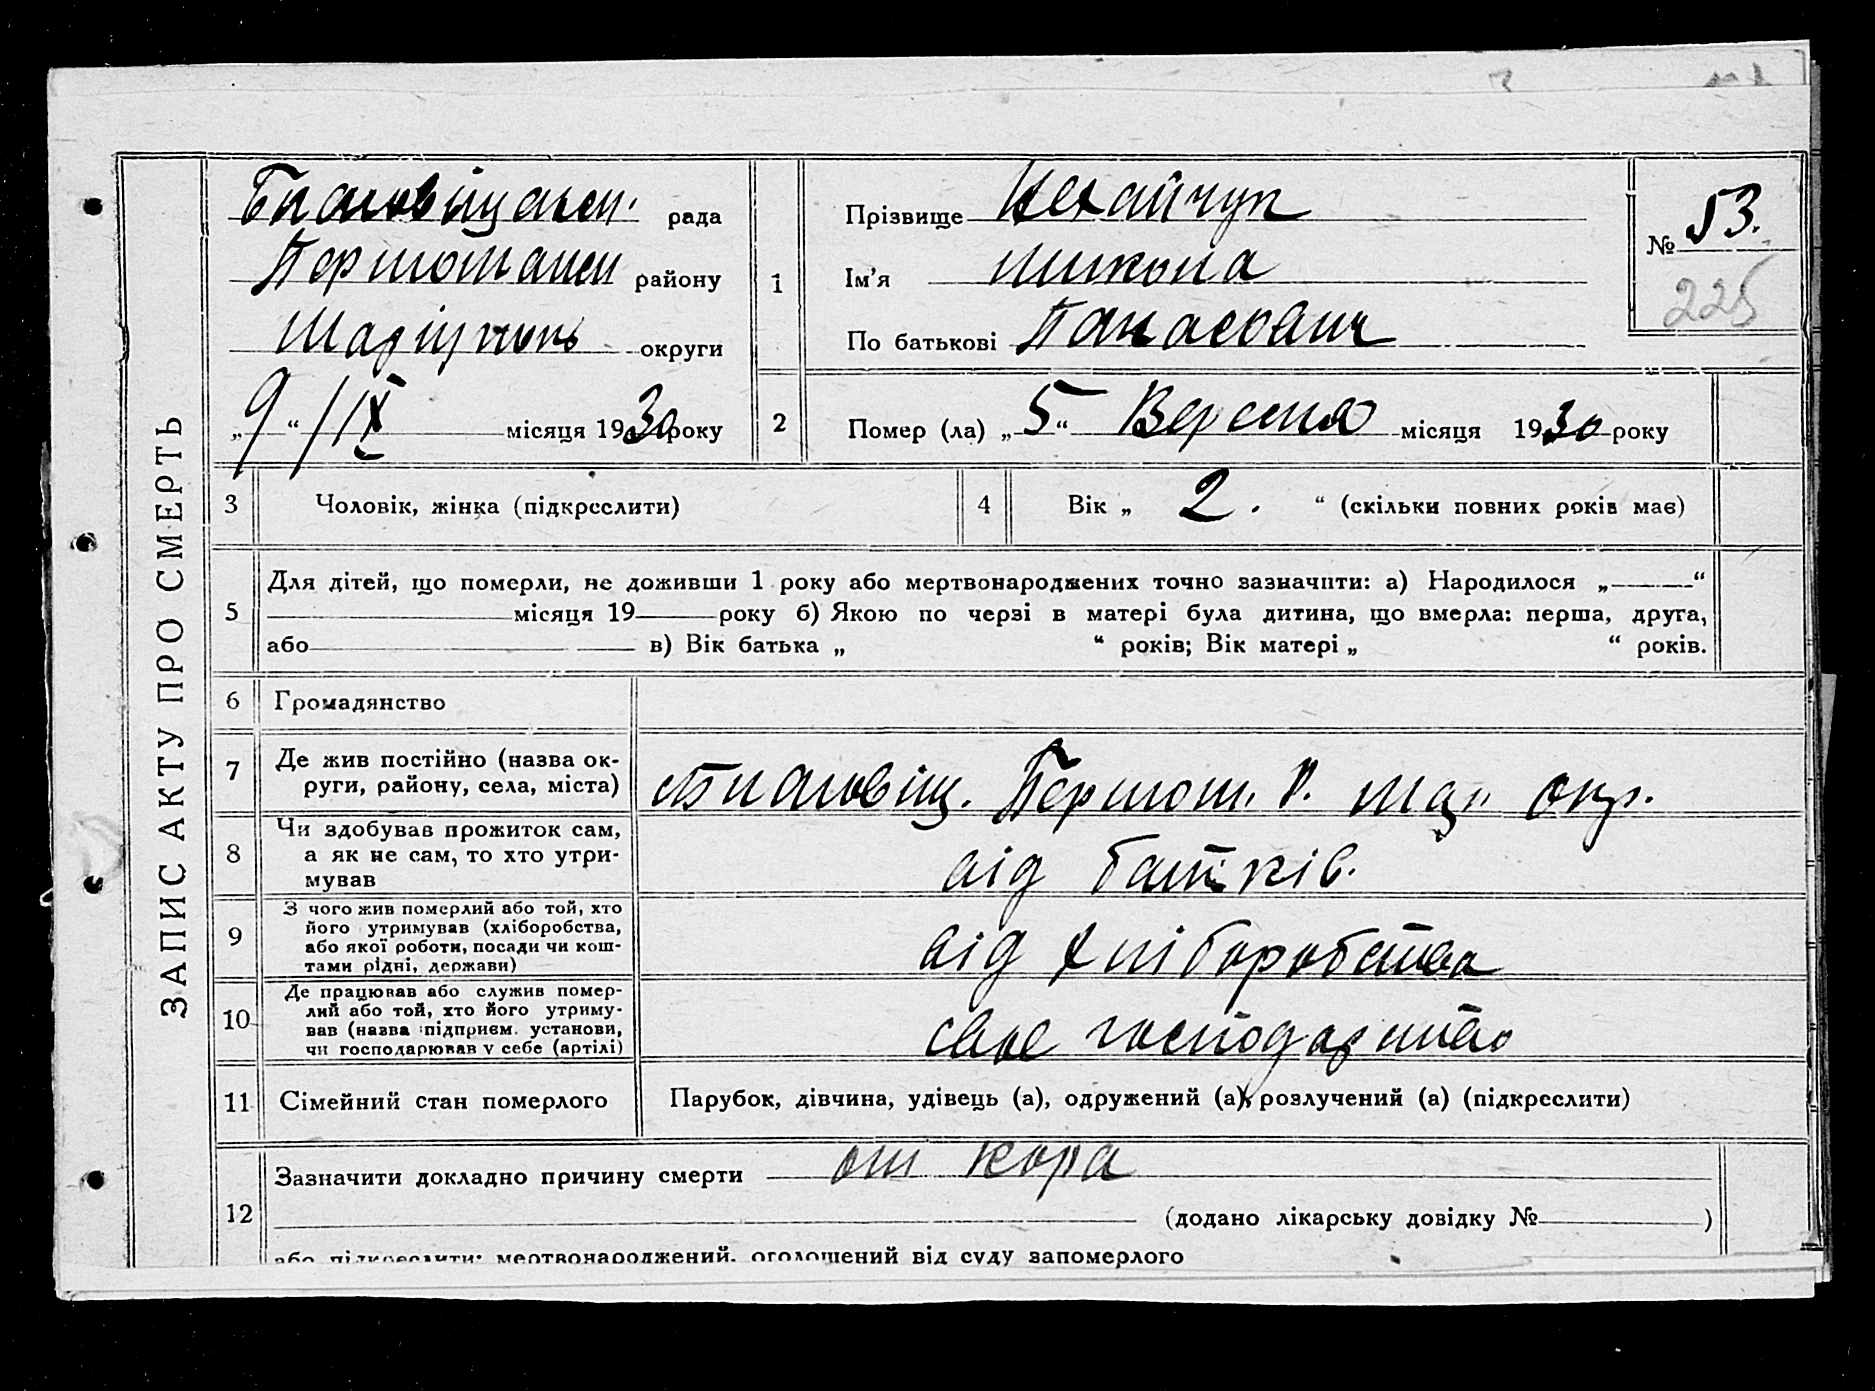 ЗАПИС АКТУ ПРО СМЕРТЬ
Благовіщенськ. рада
району
Маріупіль округи
„9“ /IX місяця 1930 року
1
Прізвище Нехайчук
Ім’я Микола
По батькові Панасович
№ 53.
225
2
Помер (ла) „5“ Вересня місяця 1930 року
3 Чоловік, жінка (підкреслити)
4 Вік „ 2. “ (скільки повних років має)
5
Для дітей, що померли, не доживши 1 року або мертвонароджених точно зазначити: а) Народилося „ “
місяця 19 року б) Якою по черзі в матері була дитина, що вмерла: перша, друга,
або в) Вік батька „ “ років; Вік матері „ “ років.
6 Громадянство
7
Де жив постійно (назва ок-
руги, району, села, міста)
Благовіщ. Р. Мар. окр.
8
Чи здобував прожиток сам,
а як не сам, то хто утри-
мував
від батьків.
9
З чого жив померлий або той, хто
його утримував (хліборобства,
або якої роботи, посади чи кош-
тами рідні, держави)
від хліборобства
10
Де працював або служив помер-
лий або той, хто його утриму-
вав (назва підприєм. установи,
чи господарював у себе (артілі)
своє господарство
11 Сімейний стан померлого
Парубок, дівчина, удівець (а), одружений (а), розлучений (а) (підкреслити)
12
Зазначити докладно причину смерти от кора
(додано лікарську довідку № )
або підкреслити: мертвонароджений, оголошений від суду запомерлого